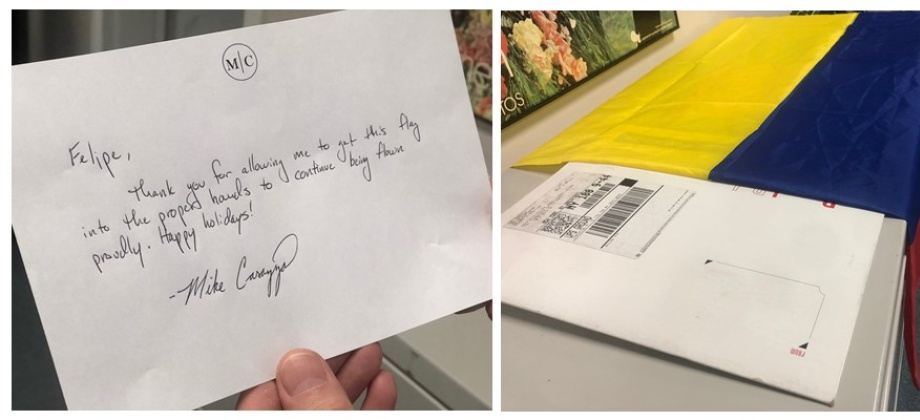 M|C
Felipe,
Thank you for allowing me to get this flag
into the proper hands to continue being flown
proudly. Happy holidays!
-Mike Carayza
TOS